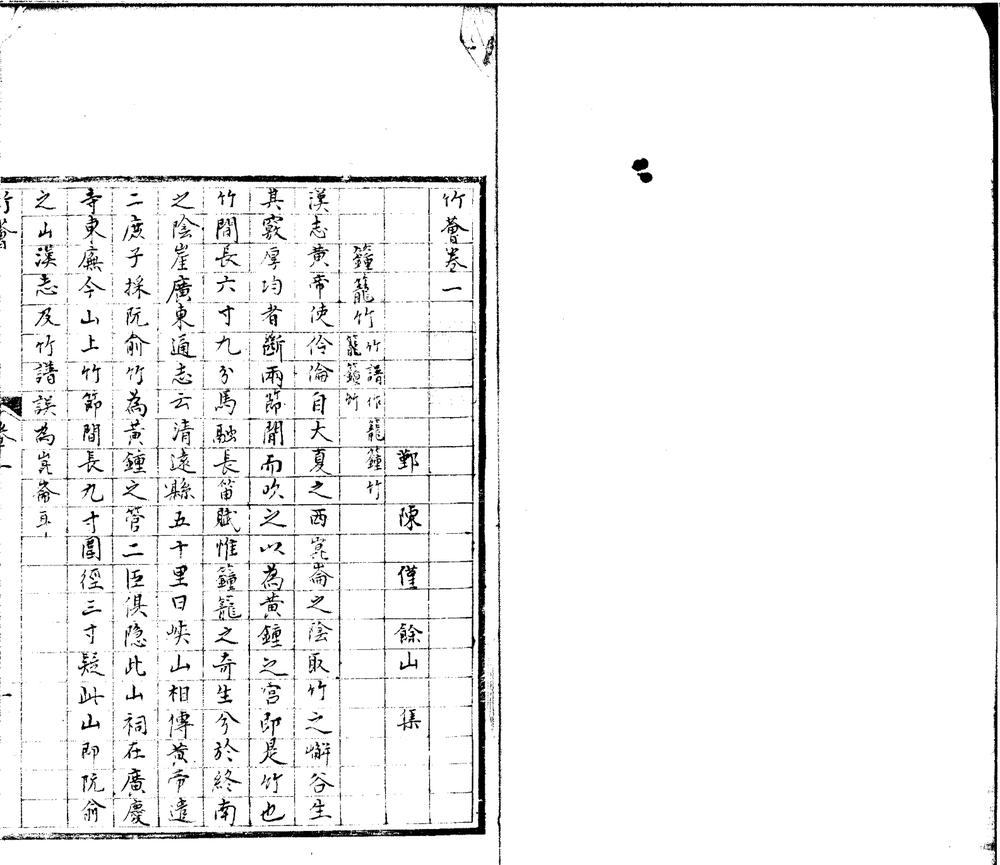 竹薈卷一
鄞　陳　僅　餘山　集
籦籠竹 竹譜作籠籦竹
漢志黄帝使伶倫自大夏之西崑崙之陰取竹之嶰谷生
其竅厚均者斷兩節間而吹之以為黄鐘之宫即是竹也
竹間長六寸九分馬融長笛賦惟籦籠之奇生兮於終南
之陰崖廣東通志云清遠縣五十里曰峽山相傳黄帝遣
二庶子採阮俞竹為黄鍾之管二臣俱隐此山祠在廣慶
寺東廡今山上竹節間長九寸圍徑三寸疑此山即阮俞
之山漢志及竹譜誤為崑崙耳